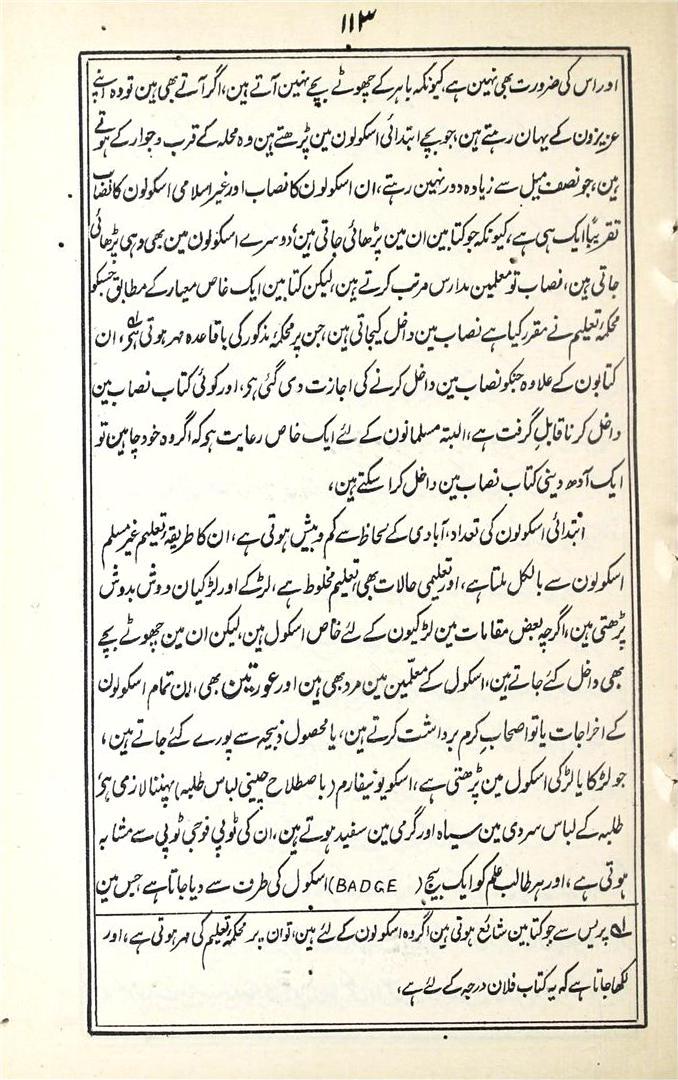 ۱۱۳
اور اس کی ضرورت بھی نہین ہے، کیونکہ باہر کے چھوٹے بچے نہین آتے ہین، اگر آتے بھی ہین تو وہ اپنے
عزیزون کے یہان رہتے ہین، جو بچے ابتدائی اسکولون مین پڑھتے ہین وہ محلہ کے قرب و جوار کے ہوتے
ہین، جو نصف میل سے زیادہ دور نہین رہتے، ان اسکولون کا نصاب اور غیر اسلامی اسکولون کا نصاب
تقریباً ایک ہی ہے، کیونکہ جو کتابین ان مین پڑھائی جاتی ہین، دوسرے اسکولون مین بھی وہی پڑھائی
جاتی ہین، نصاب تو معلمین مدارس مرتب کرتے ہین، لیکن کتابین ایک خاص معیار کے مطابق جسکو
محکمۂ تعلیم نے مقرر کیا ہے نصاب مین داخل کیجاتی ہین، جن پر محکمۂ مذکور کی باقاعدہ مہر ہوتی ہی، ان
کتابون کے علاوہ جنکو نصاب مین داخل کرنے کی اجازت دی گئی ہی، اور کوئی کتاب نصاب مین
داخل کرنا قابلِ گرفت ہے، البتہ مسلمانون کے لئے ایک خاص رعایت ہی کہ اگر وہ خود چاہین تو
ایک آدھ دینی کتاب نصاب مین داخل کرا سکتے ہین،
ابتدائی اسکولون کی تعداد، آبادی کے لحاظ سے کم و بیش ہوتی ہے، ان کا طریقۂ تعلیم غیر مسلم
اسکولون سے بالکل ملتا ہے، اور تعلیمی حالات بھی، تعلیم مخلوط ہے، لڑکے اور لڑکیان دوش بدوش
پڑھتی ہین، اگرچہ بعض مقامات مین لڑکیون کے لئے خاص اسکول ہین، لیکن ان مین چھوٹے بچے
بھی داخل کئے جاتے ہین، اسکول کے معلّمین مین مرد بھی ہین اور عورتین بھی، ان تمام اسکولون
کے اخراجات یا تو اصحابِ کرم برداشت کرتے ہین، یا محصول ذبیحہ سے پورے کئے جاتے ہین،
جو لڑکا یا لڑکی اسکول مین پڑھتی ہے، اسکو یونیفارم (باصطلاح چینی لباس طلبہ) پہننا لازمی ہی،
طلبہ کے لباس سردی مین سیاہ اور گرمی مین سفید ہوتے ہین، ان کی ٹوپی فوجی ٹوپی سے مشابہ
ہوتی ہے، اور ہر طالب علم کو ایک بیج (BADGE) اسکول کی طرف سے دیا جاتا ہے جس مین
لہ پریس سے جو کتابین شائع ہوتی ہین اگر وہ اسکولون کے لئے ہین، تو ان پر محکمۂ تعلیم کی مہر ہوتی ہے، اور
لکھا جاتا ہے کہ یہ کتاب فلان درجہ کے لئے ہے،